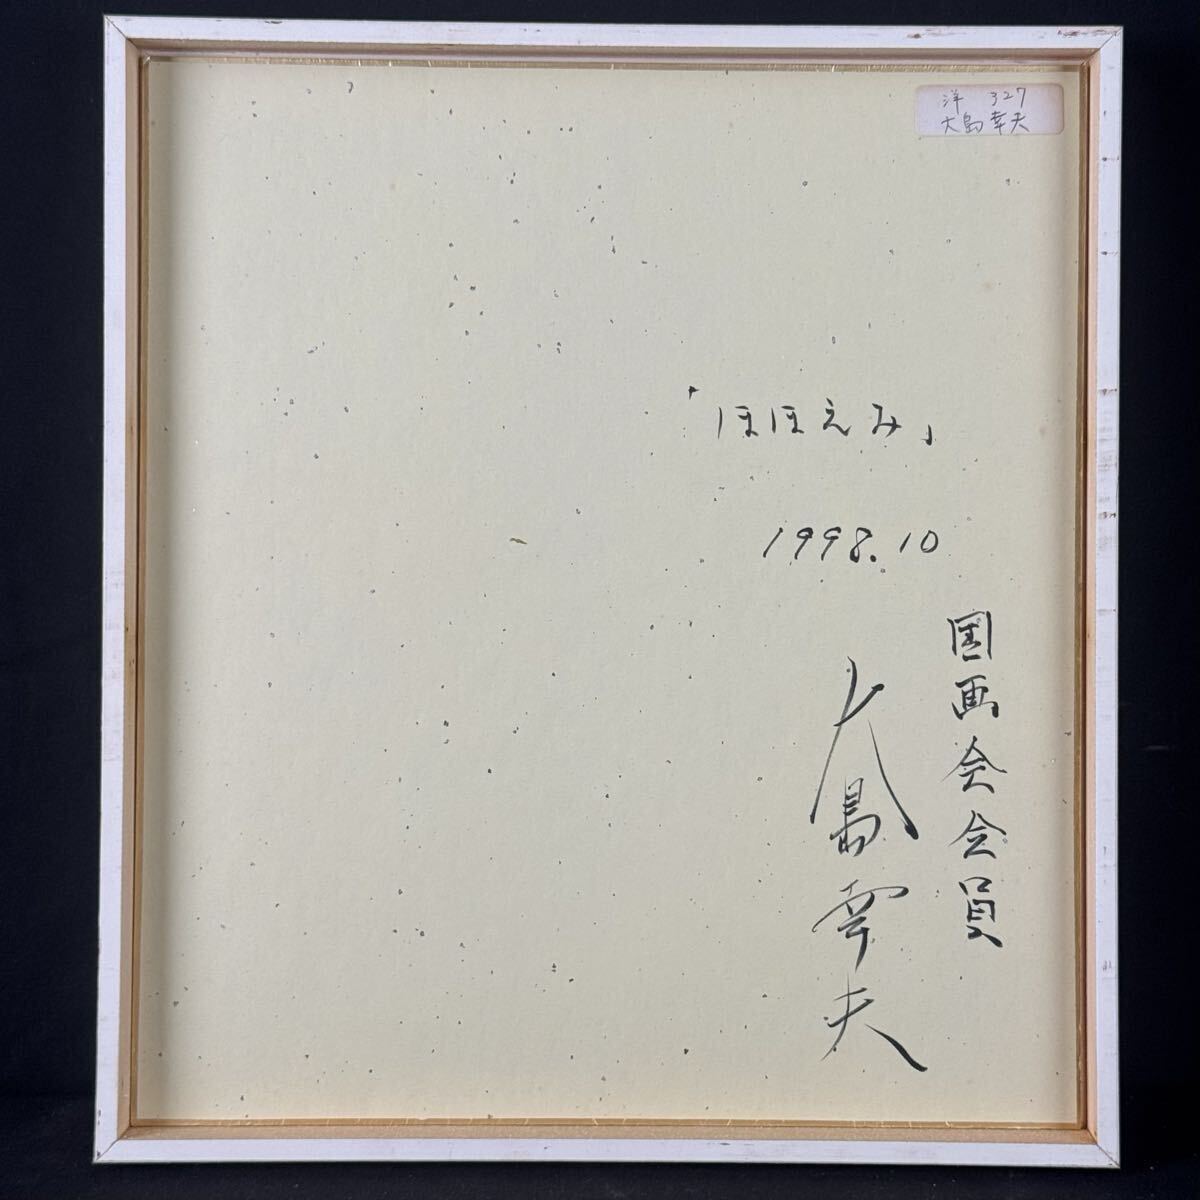 洋 327
大島幸夫
「ほほえみ」
1998.10
国画会会員
大島幸夫